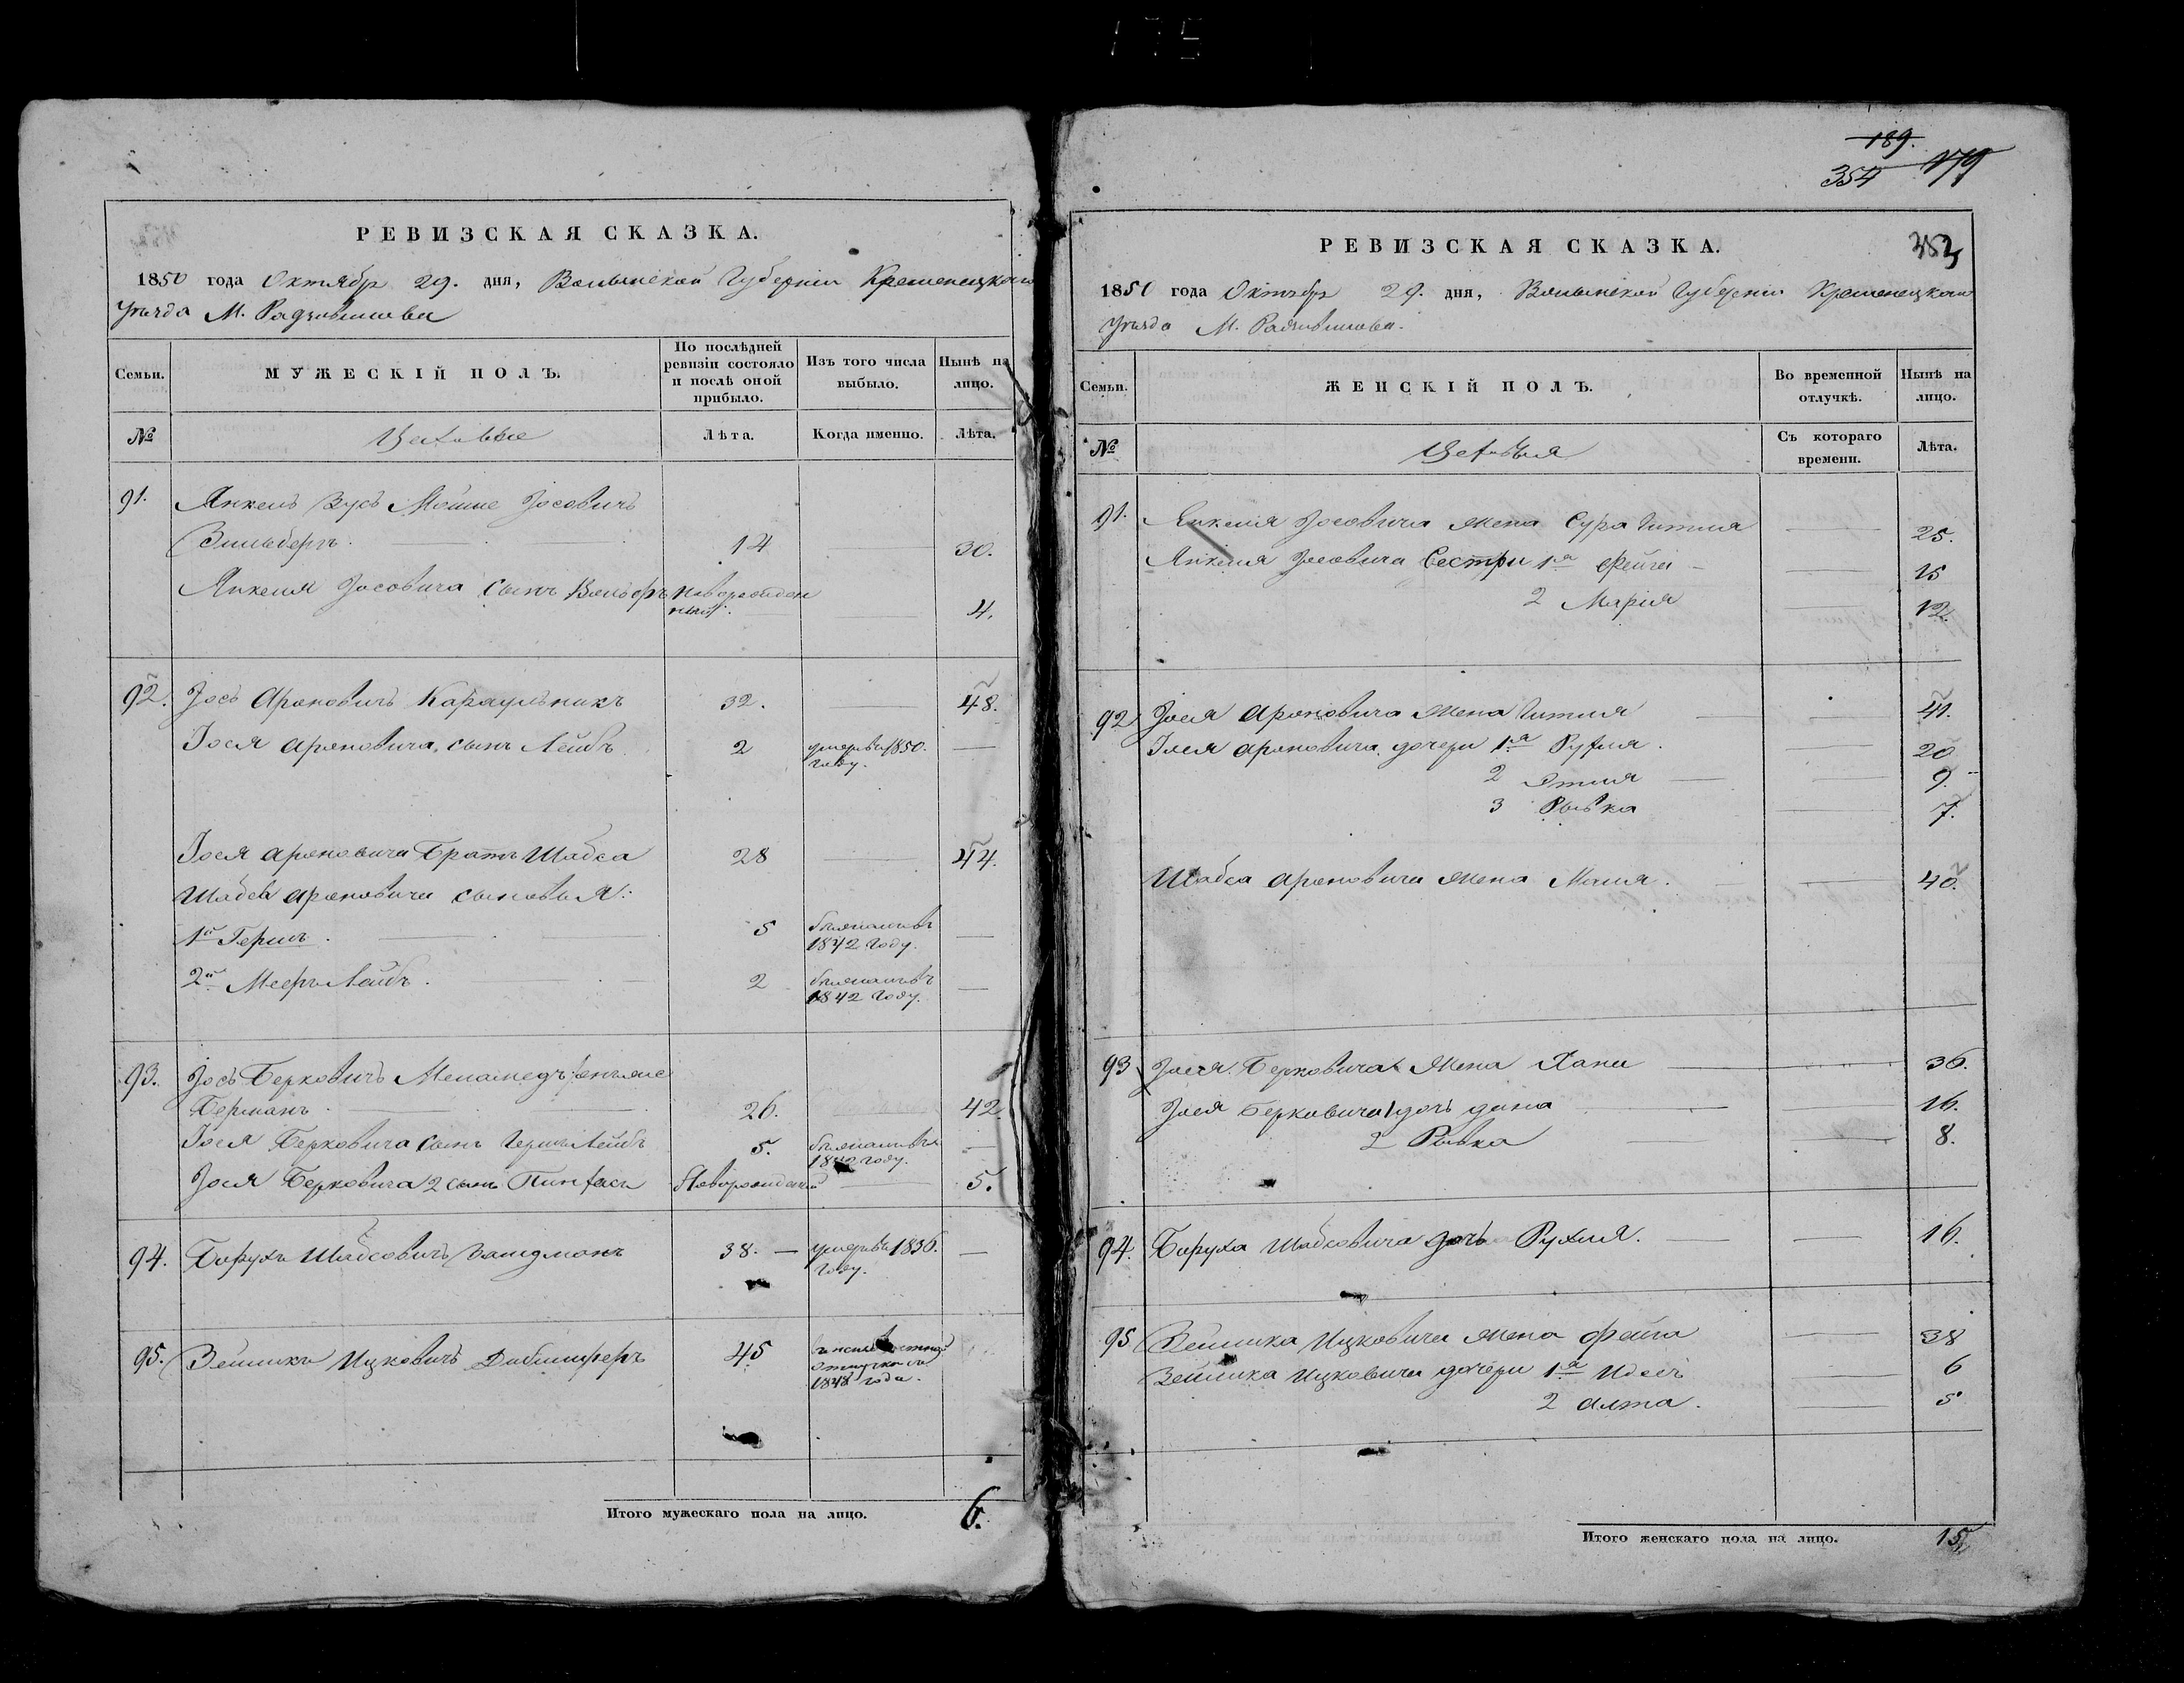 175
РЕВИЗСКАЯ СКАЗКА.
1850 года Октября 29. дня, Волынской Губерніи Кременецкаго
Уѣзда М. Радзивилова
Семьи.
МУЖЕСКІЙ ПОЛЪ.
По послѣдней ревизіи состояло и послѣ оной прибыло.
Изъ того числа выбыло.
Нынѣ на лицо.
№
Цеховые
Лѣта.
Когда именно.
Лѣта.
91. Янкель Зусь Мошко Іосовичъ
Зильберъ. 14 30.
Янкеля Іосовича сынъ Вольфъ Новорожден
ный. 4.
92. Іось Ароновичъ Караульникъ 32. 48.
Іося Ароновича сынъ Лейбъ 2 умеръ въ 1850.
году.
Іося Ароновича Братъ Шабса 28 44.
Шабсы Ароновича сыновья:
1й Гершъ. 5
1842 году.
2й Мееръ Лейбъ. 2
1842 году.
93. Іось Берковичъ Меламедъ онъ же
Берманъ. 26. 42
Іося Берковича сынъ Гершъ Лейбъ 5.
году.
Іося Берковича 2 сынъ Пинхасъ Новорожденый 5.
94. Борухъ Шабсовичъ Вайдманъ 38. умеръ въ 1836.
году.
95. Зейликъ Ицковичъ 45
отлучки съ
1848 года.
Итого мужескаго пола на лицо. 6.
189.
354 179
РЕВИЗСКАЯ СКАЗКА. 353
1850 года Октября 29. дня, Волынской Губерніи Кременецкаго
Уѣзда М. Радзивилова.
Семьи.
ЖЕНСКІЙ ПОЛЪ.
Во временной отлучкѣ.
Нынѣ на лицо.
№
Цеховыя
Съ котораго времени.
Лѣта.
91. Янкеля Іосовича жена Сура Гитля 25.
Янкеля Іосовича Сестры 1я Фейга 15
2 Марія 12.
92 Іося Ароновича жена Гитля 41.
Іося Ароновича дочери 1я Рухля. 20
2 Этля 9.
3 Рывка 7.
Шабса Ароновича жена Маля. 40.
93 Іося Берковича жена Хана 36.
Іося Берковича 1 дочь Дина 16.
2 Рывка 8.
94. Боруха Шабсовича дочь Рухля. 16.
95 Зейлика Ицковича жена Фейга 38
Зейлика Ицковича дочери 1я Идесъ 6
2 Алта. 5
Итого женскаго пола на лицо. 15